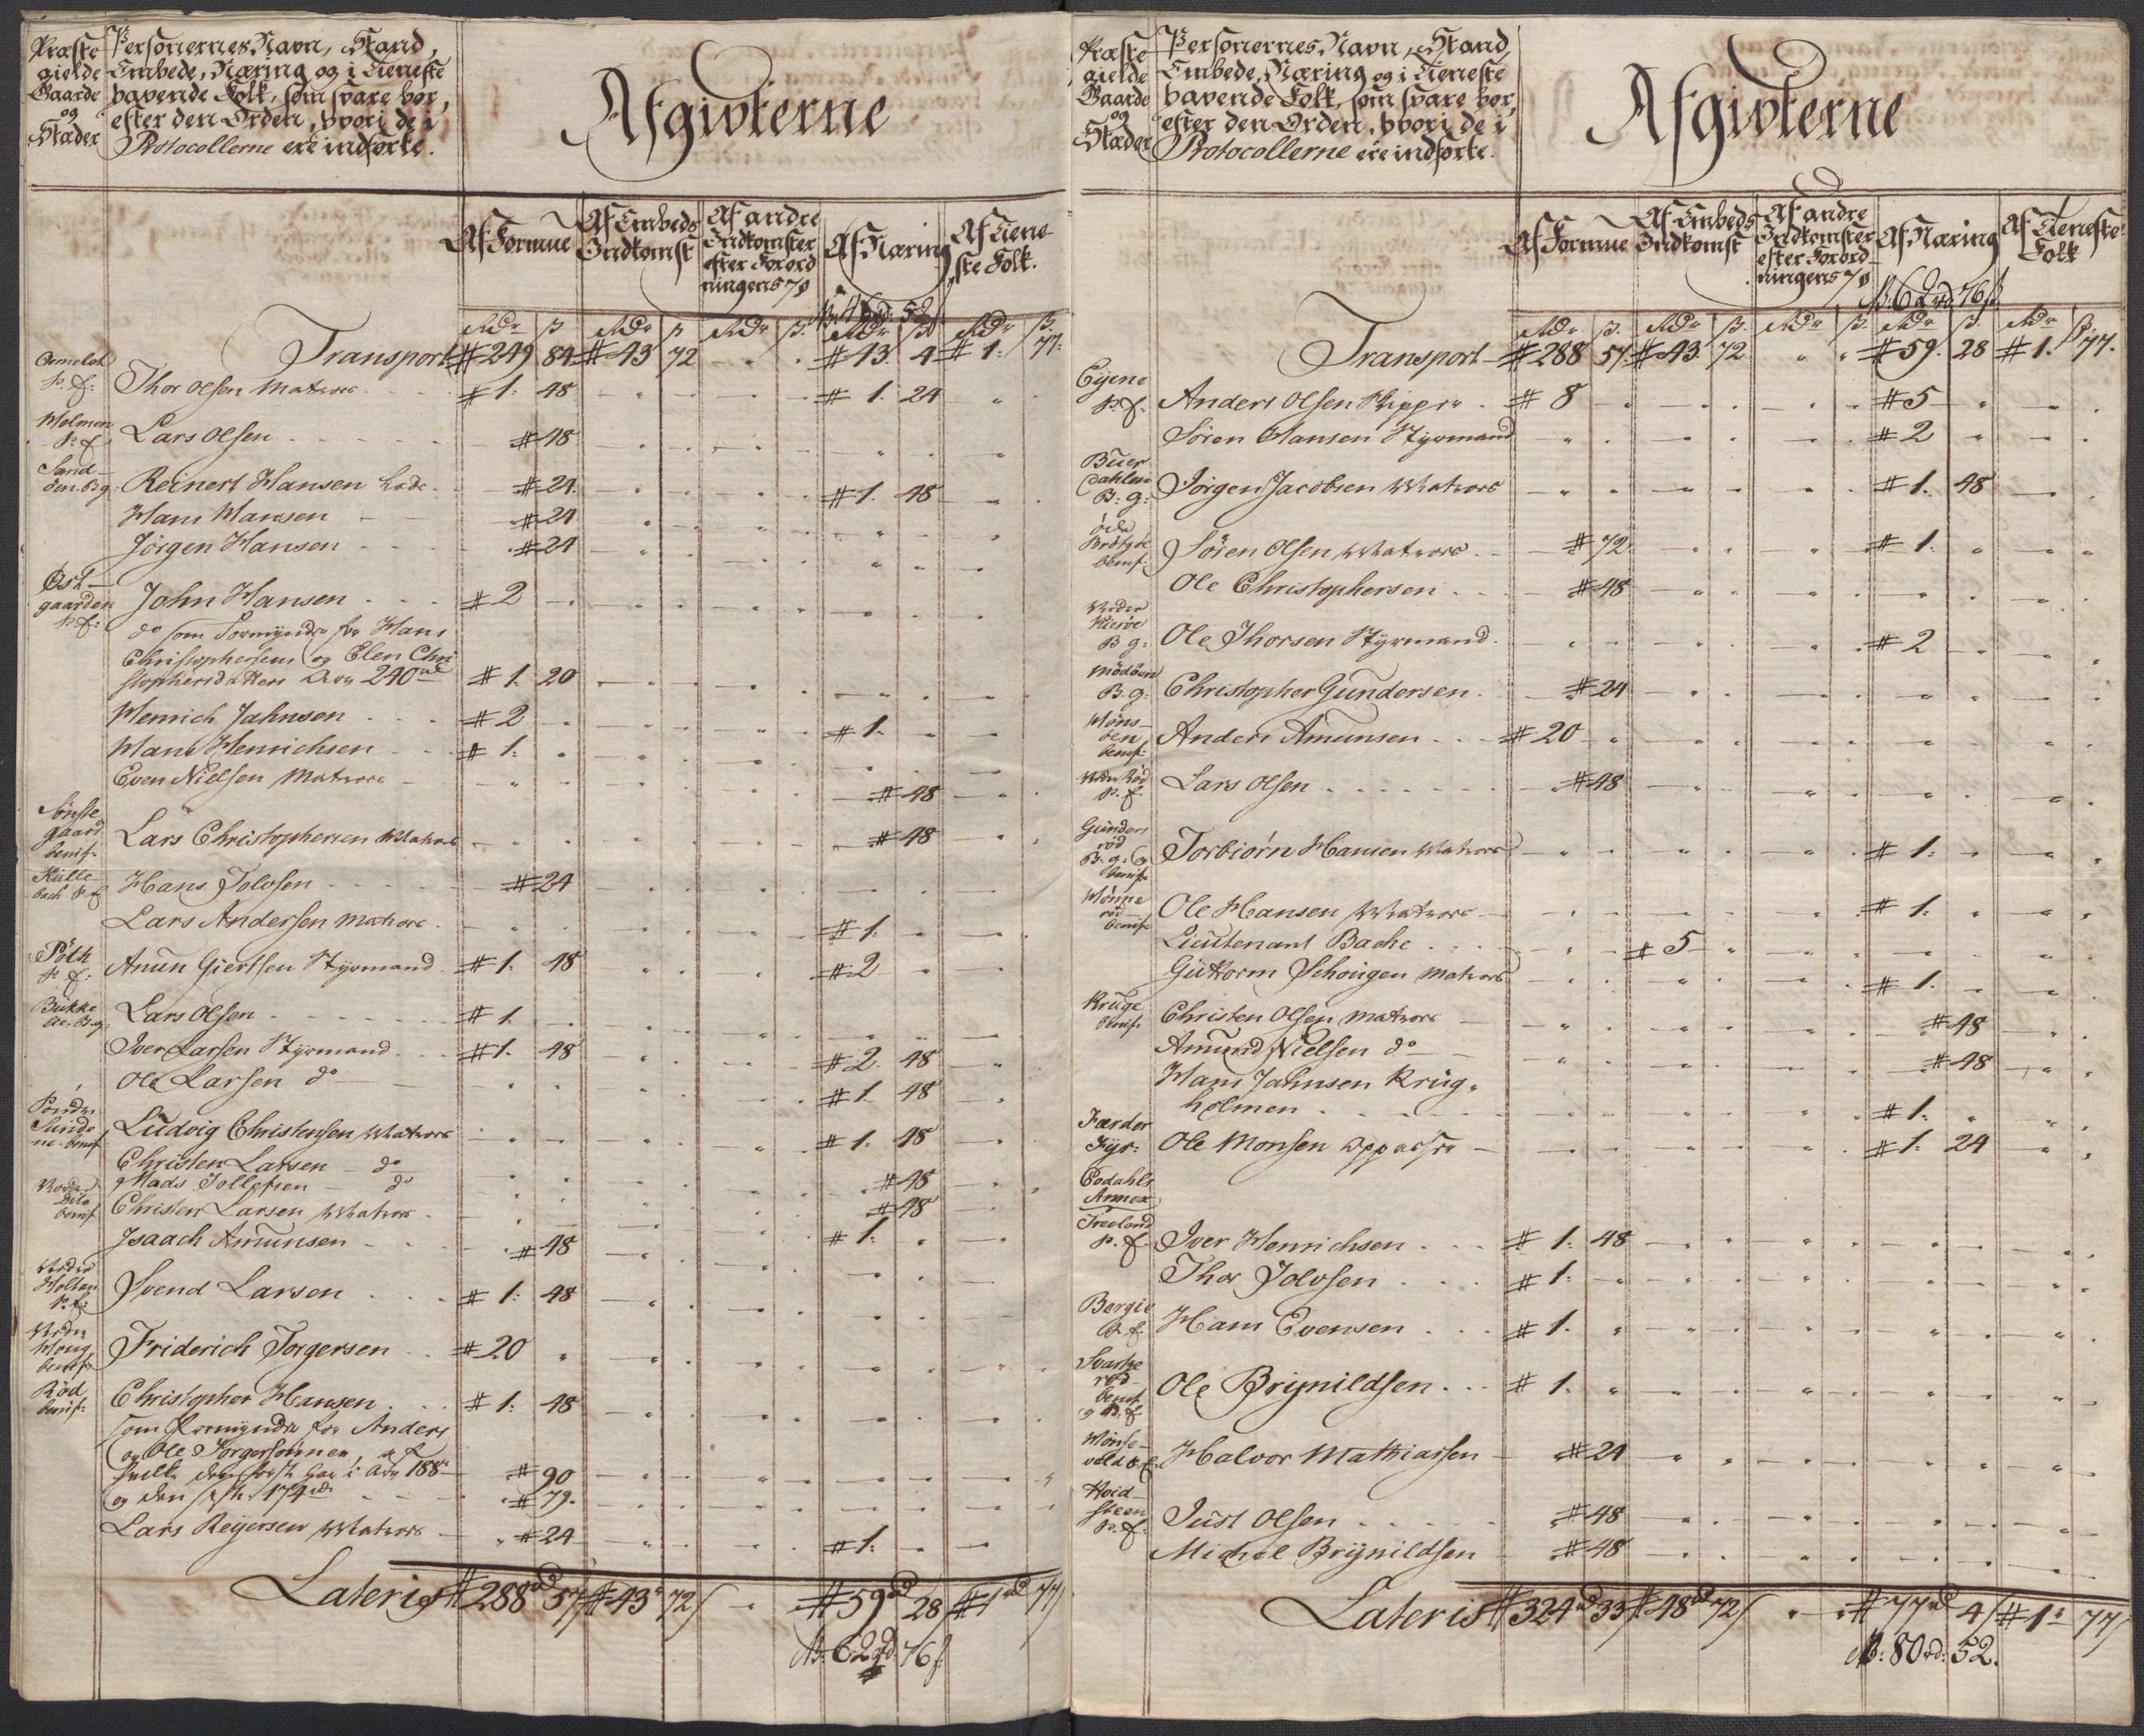 Præste
gielde
Gaarde
og
Stæder
Personernes Navn, Stand,
Embede, Næring og i Tieneste
havende Folk, som svare hor,
efter den Orden, hvori de i
Protocollerne ere indførte.
Afgivterne
Af Formue
Af Embeds Indkomst
Af andre Indkomster efter Forordningens 7 §
Af Næring
Af Tieneste Folk.
Rdr ß Rdr ß Rdr ß. Rdr ß Rdr ß.
Transport # 249 84 # 43 72 # 43. 4 # 1: 77:
P. f: Thor Olsen Matros # 1. 48 # 1. 24
Holmen P. f. Lars Olsen # 48
Sand- øen B g. Reinert Hansen Lods # 24. # 1. 48
Hans Hansen # 24
Jørgen Hansen # 24
Øst- gaarden P. f: John Hansen # 2
do som Formynder for Hans
Christophersen og Elen Chri
stophersdatter Arv 240 rd # 1. 20
Henrich Jahnsen # 2 # 1.
Hans Henrichsen # 1.
Even Nielsen Matros # 48
Sønste gaard benif. Lars Christophersen Matros # 48
Kille- bach P. f. Hans Tolvsen # 24
Lars Andersen Matros # 1.
Pøth P. f: Anun Giertsen Styrmand # 1. 48 # 2
Bukke B.g: Lars Olsen # 1.
Iver Larsen Styrmand # 1. 48 # 2. 48
Ole Larsen do # 1. 48
Søndre benif. Ludvig Christensen Matros # 1. 48
Christen Larsen do # 48
Mads Tollefsen do # 48
benif. Christen Larsen Matros # 1.
Isaach Amunsen # 48
Nedre Holtan P. f: Svend Larsen # 1: 48
Nedre Houg benif. Friderich Torgersen # 20
Rød benif: Christopher Hansen # 1: 48
som Formynder for Anders
og Ole Torgersønner, af
hvilke den første har i Arv 188 rd # 90
og den sidste 174 rd # 79.
Lars Reyersen Matros # 24 # 1:
Lateris # 288 rd 57 # 43 72 # 59 rd 28 # 1 rd 77
N: 62 rd 76
Præste
gielde
Gaarde
og
Stæder
Personernes Navn, Stand,
Embede, Næring og i Tieneste
havende Folk, som svare hor,
efter den Orden, hvori de i
Protocollerne ere indførte.
Afgivterne
Af Formue
Af Embeds Indkomst
Af andre Indkomster efter Forordningens 7 §
Af Næring
Af Tieneste Folk
N. 62 rd 76 ß
Rdr ß. Rdr ß. Rdr ß. Rdr ß. Rdr ß.
Transport # 288 57. # 43. 72 # 59. 28 # 1. 77.
Eyene P. f. Anders Olsen Skipper # 8 # 5
Søren Hansen Styrmand # 2
Buer Dahlen B. g: Jørgen Jacobsen Matros # 1. 48
benif. Søren Olsen Matros # 72. # 1.
Ole Christophersen # 48
Nedre Kierøe B g: Ole Thorsen Styrmand # 2
B. g. Christopher Gundersen # 24
Høns- øen benif: Anders Amunsen # 20
Nedre Rød P. f. Lars Olsen # 48
Gunders rød B. g: og benif. Torbiørn Hansen Matros # 1:
Hønne rød benif. Ole Hansen Matros # 1.
Lieutenant Bache # 5
Guttorm Schougen Matros # 1.
Kruge benif. Christen Olsen Matros # 48
Amund Nielsen do # 48
Hans Jahnsen Krug-
holmen # 1:
Færder Fyr: Ole Monsen Oppasser # 1. 24
Eodahls Annex
P. f. Iver Henrichsen # 1: 48
Thor Tolvsen # 1:
Bergie P. f. Hans Evensen # 1.
Svarte rød benif og P. f. Ole Brynildsen # 1.
Halvor Mathiassen # 24
Hvid- steen P. f. Just Olsen # 48
Michel Brynildsen # 48
Lateris # 324 rd 33 # 48 rd 72 # 77 rd 4 # 1 77
N: 80 rd: 52.